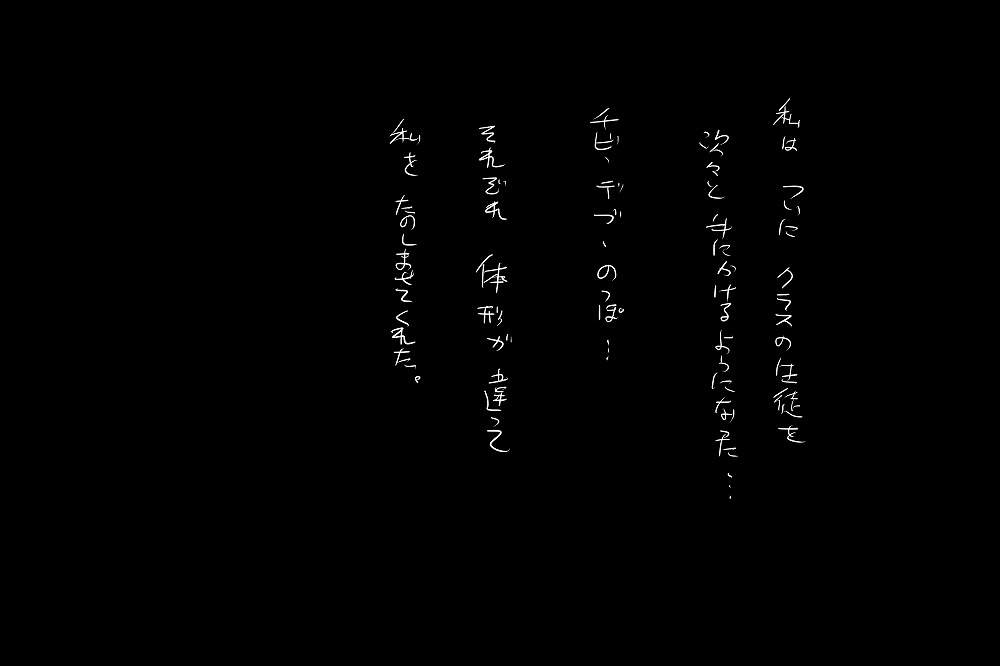 私は ついに クラスの生徒を
次々と 手にかけるようになった…
チビ、デブ、のっぽ…
それぞれ 体形が 違って
私を たのしませてくれた。